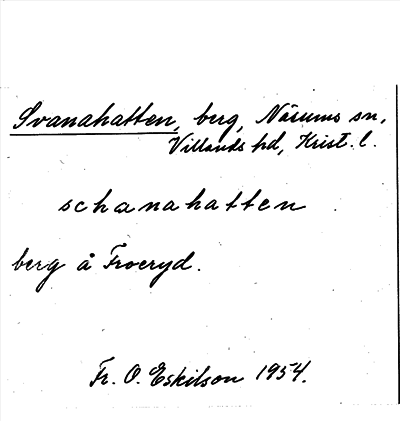 Svanahatten, berg, Näsums sn,
Villands hd, Krist. l.
schanahatten
berg å Froeryd.
Fr. O. Eskilson 1954.